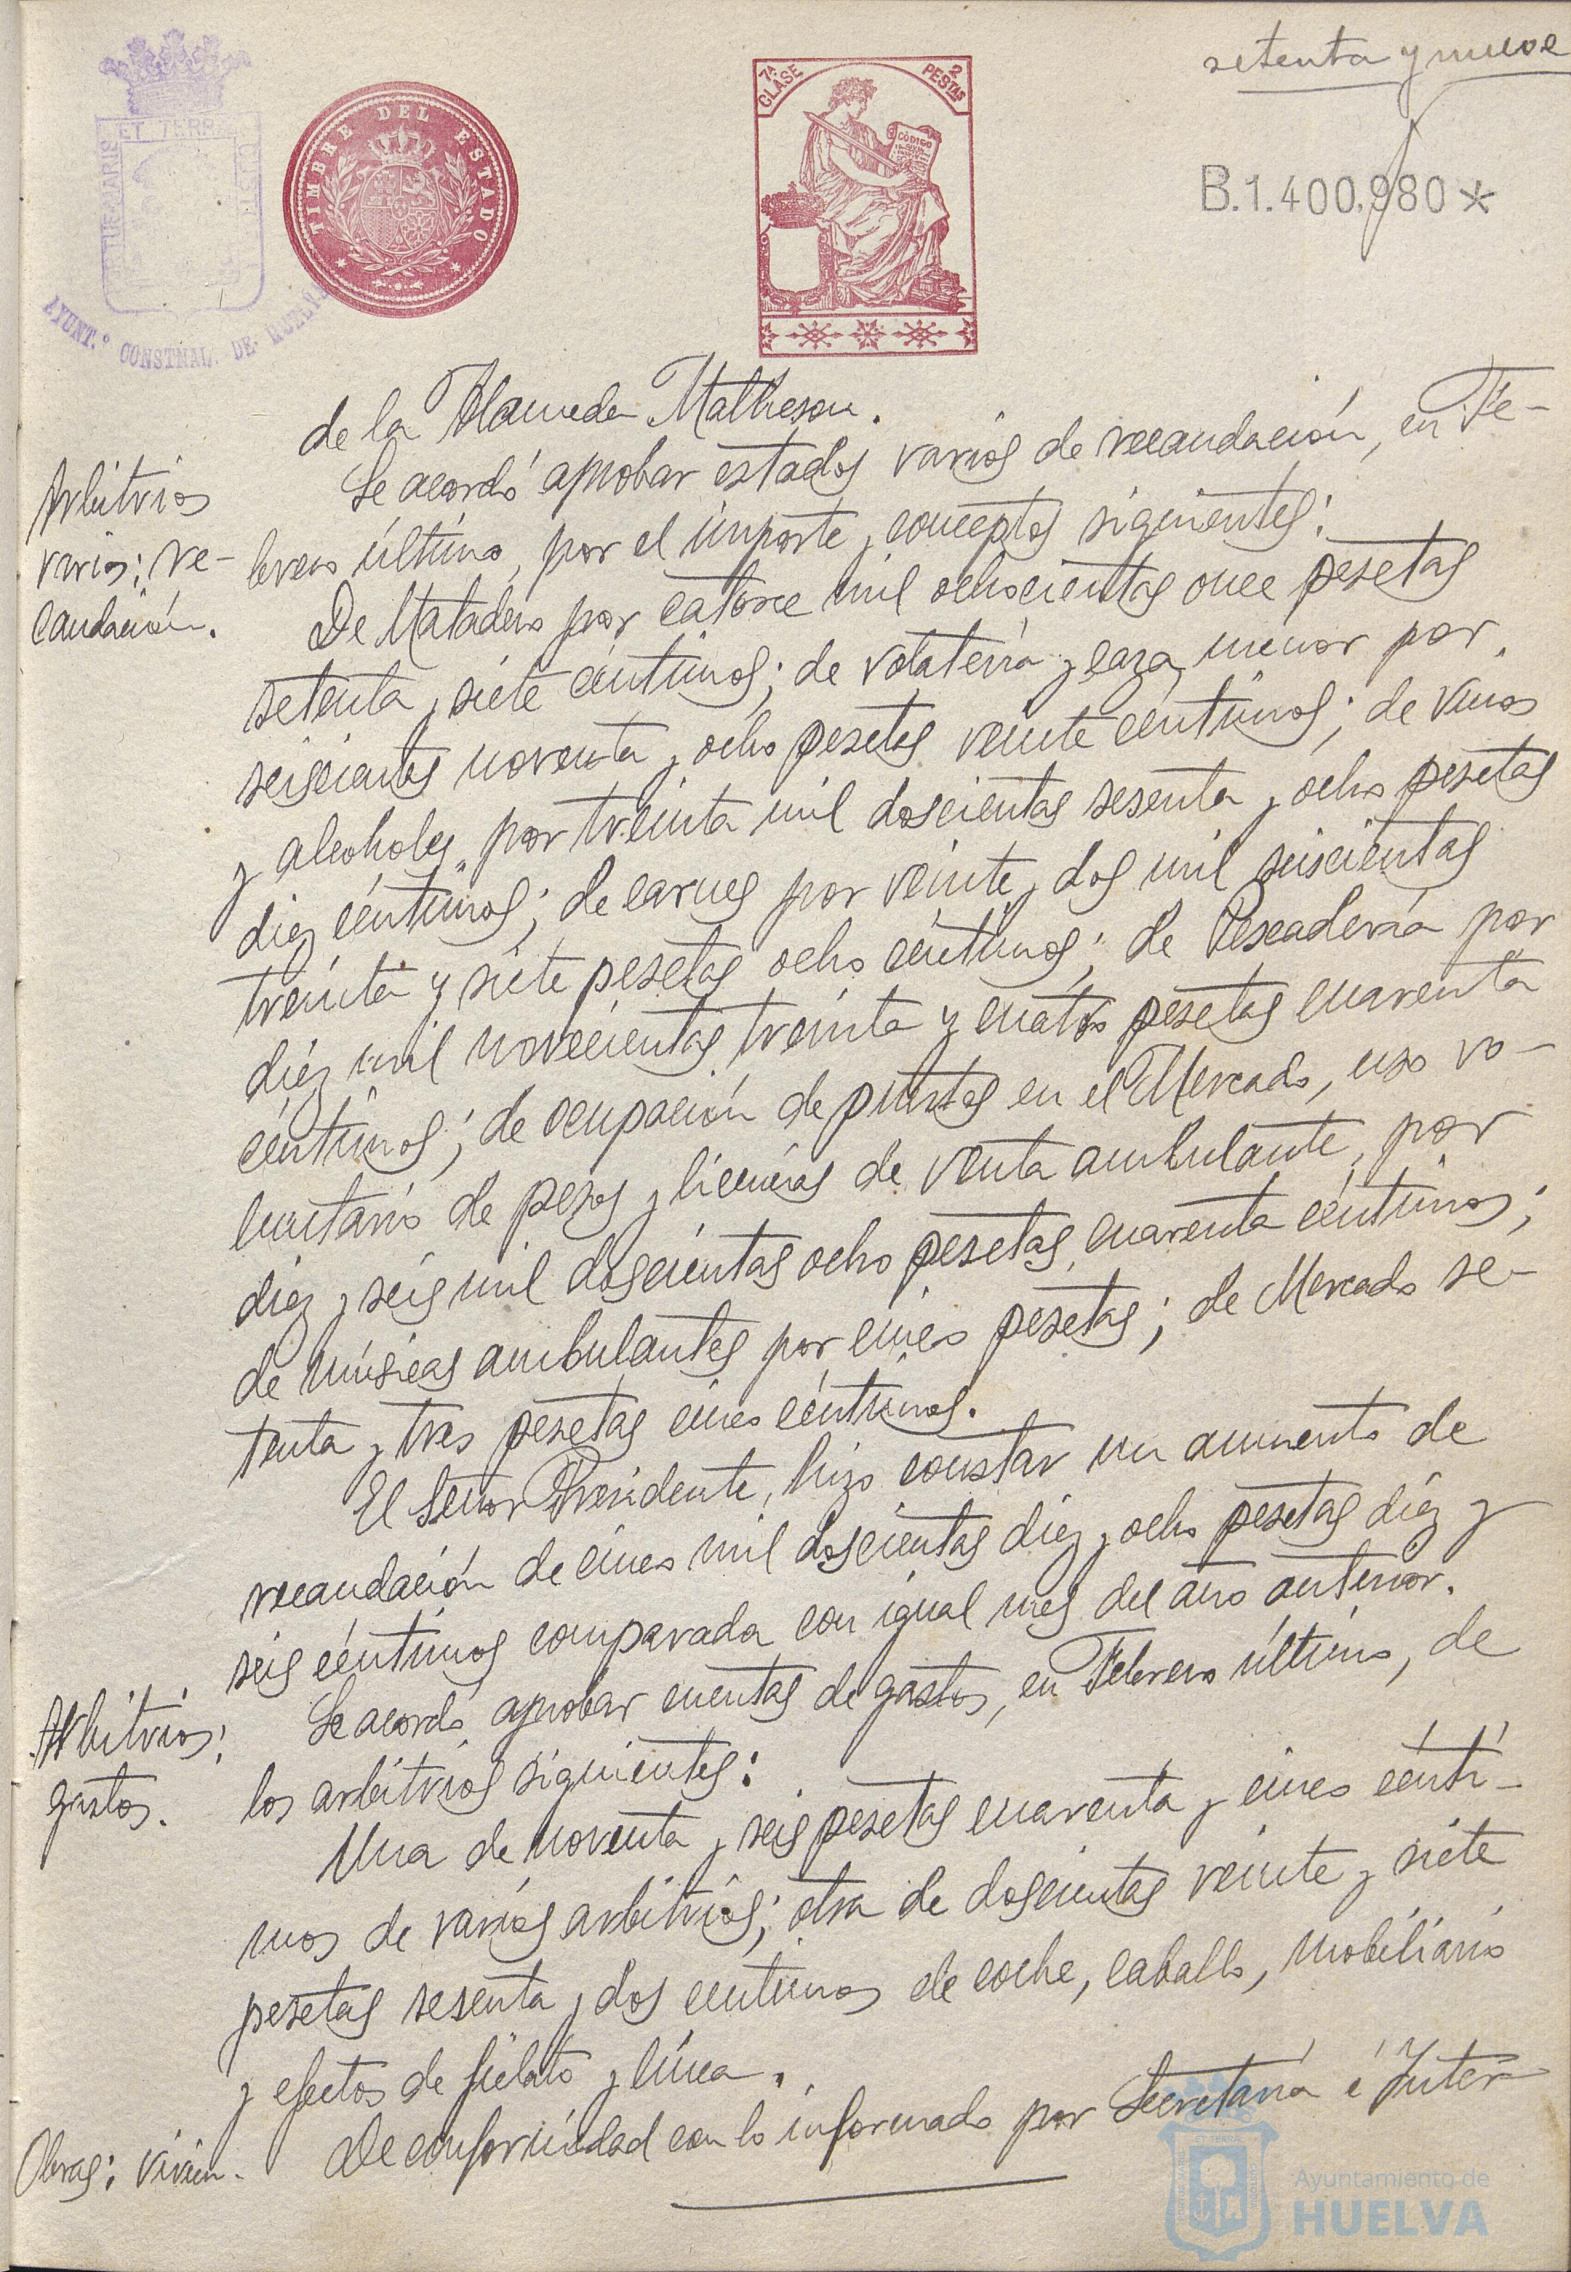 setenta y nueve
B.1.400.980*
ET TERRAE
AYUNT.º CONSTNAL. DE HUELVA
TIMBRE DEL ESTADO
7ª CLASE
2 PESTAS
CÓDIGO
de la Alameda Matheson.
Arbitrios
varios; re-
caudación.
Se acordó aprobar estados varios de recaudación, en Fe-
brero último, por el importe y conceptos siguientes:
De Matadero por catorce mil ochocientas once pesetas
setenta y siete céntimos; de volatería y caza menor por
seiscientas noventa y ocho pesetas veinte céntimos; de vinos
y alcoholes, por treinta mil doscientas sesenta y ocho pesetas
diez céntimos; de carnes por veinte y dos mil seiscientas
treinta y siete pesetas ocho céntimos; de Pescadería por
diez mil novecientas treinta y cuatro pesetas cuarenta
céntimos; de ocupación de puestos en el Mercado, uso vo-
luntario de pesos y licencias de venta ambulante, por
diez y seis mil doscientas ocho pesetas cuarenta céntimos;
de músicas ambulantes por cinco pesetas; de Mercado se-
tenta y tres pesetas cinco céntimos.
El Señor Presidente, hizo constar un aumento de
recaudación de cinco mil doscientas diez y ocho pesetas diez y
seis céntimos comparada con igual mes del año anterior.
Arbitrios;
gastos.
Se acordó aprobar cuentas de gastos, en Febrero último, de
los arbitrios siguientes:
Una de noventa y seis pesetas cuarenta y cinco cénti-
mos de varios arbitrios; otra de doscientas veinte y siete
pesetas sesenta y dos centimos de coche, caballo, mobiliario
y efectos de fielato y línea.
Obras: vivien-
De conformidad con lo informado por Secretaría é Inter-
Ayuntamiento de
HUELVA